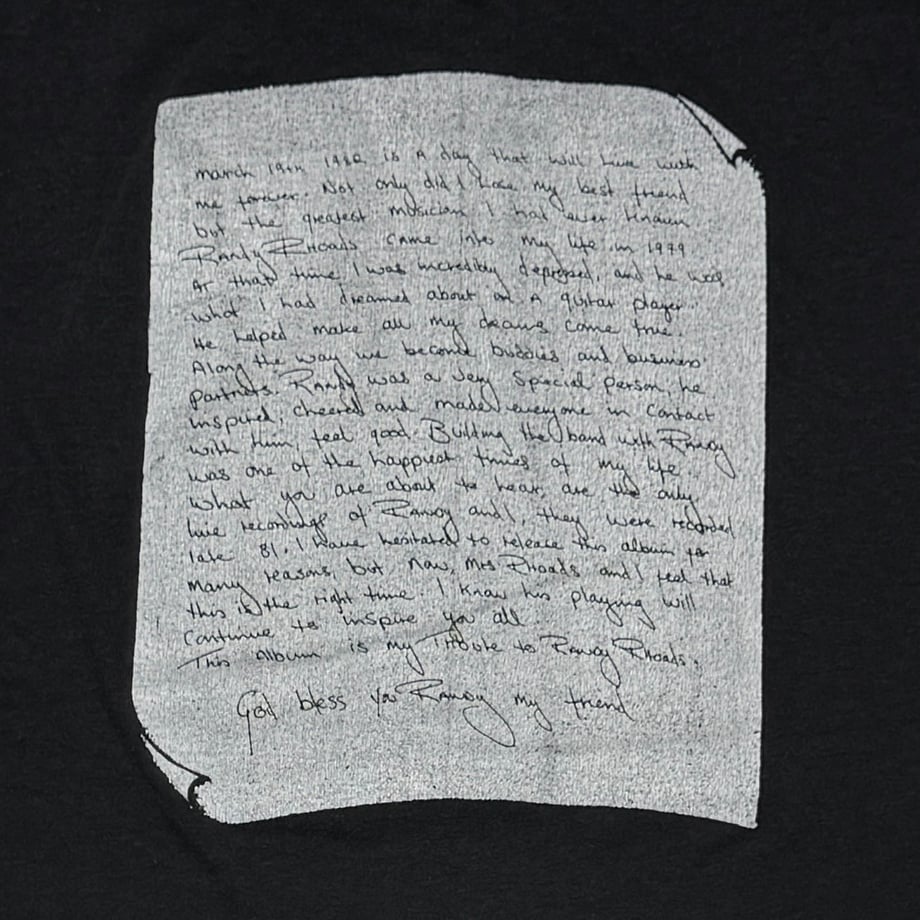 March 19th 1982 is a day that will live with
me forever. Not only did I lose my best friend
but the greatest musician I had ever known
Randy Rhoads came into my life in 1979
At that time I was incredibly depressed, and he was
what I had dreamed about in a guitar player.
He helped make all my dreams come true.
Along the way we become buddies and business
partners. Randy was a very special person, he
inspired, cheered and made everyone in contact
with him, feel good. Building the band with Randy
was one of the happiest times of my life.
What you are about to hear, are the only
live recordings of Randy and I, they were recorded
late 81. I have hesitated to release this album for
many reasons, but now, Mrs Rhoads and I feel that
this is the right time. I know his playing will
continue to inspire you all.
This album is my Tribute to Randy Rhoads.
God bless you Randy my friend